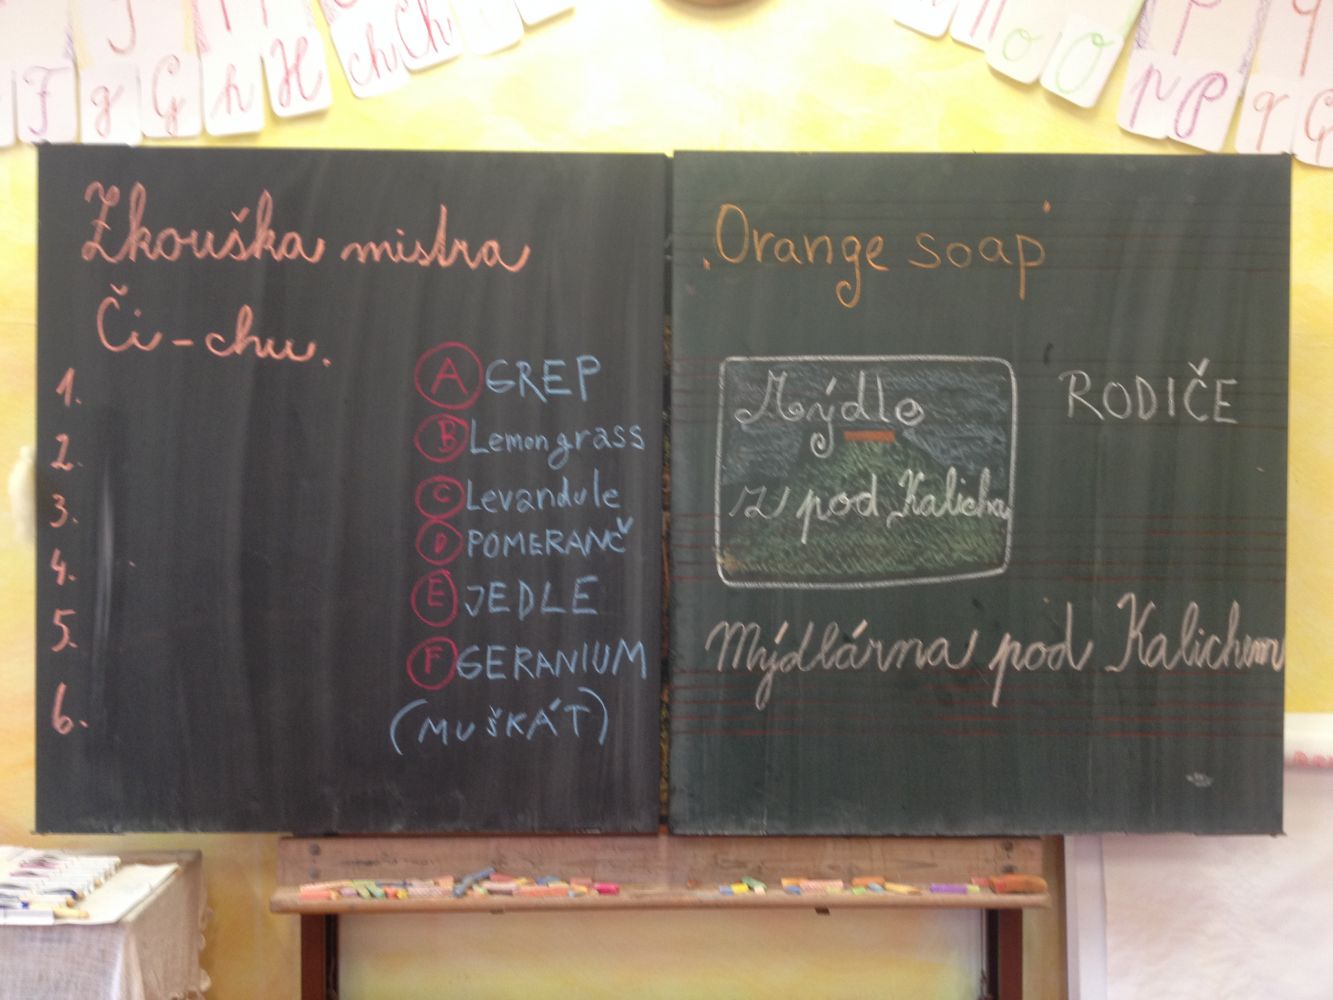 F g G h H ch Ch
o O p P q
Zkouška mistra
Či-chu.
1.
2.
3.
4.
5.
6.
A GREP
B Lemongrass
C Levandule
D POMERANČ
E JEDLE
F GERANIUM
(MUŠKÁT)
Orange soap
Mýdlo
z pod Kalicha
RODIČE
Mýdlárna pod Kalichem